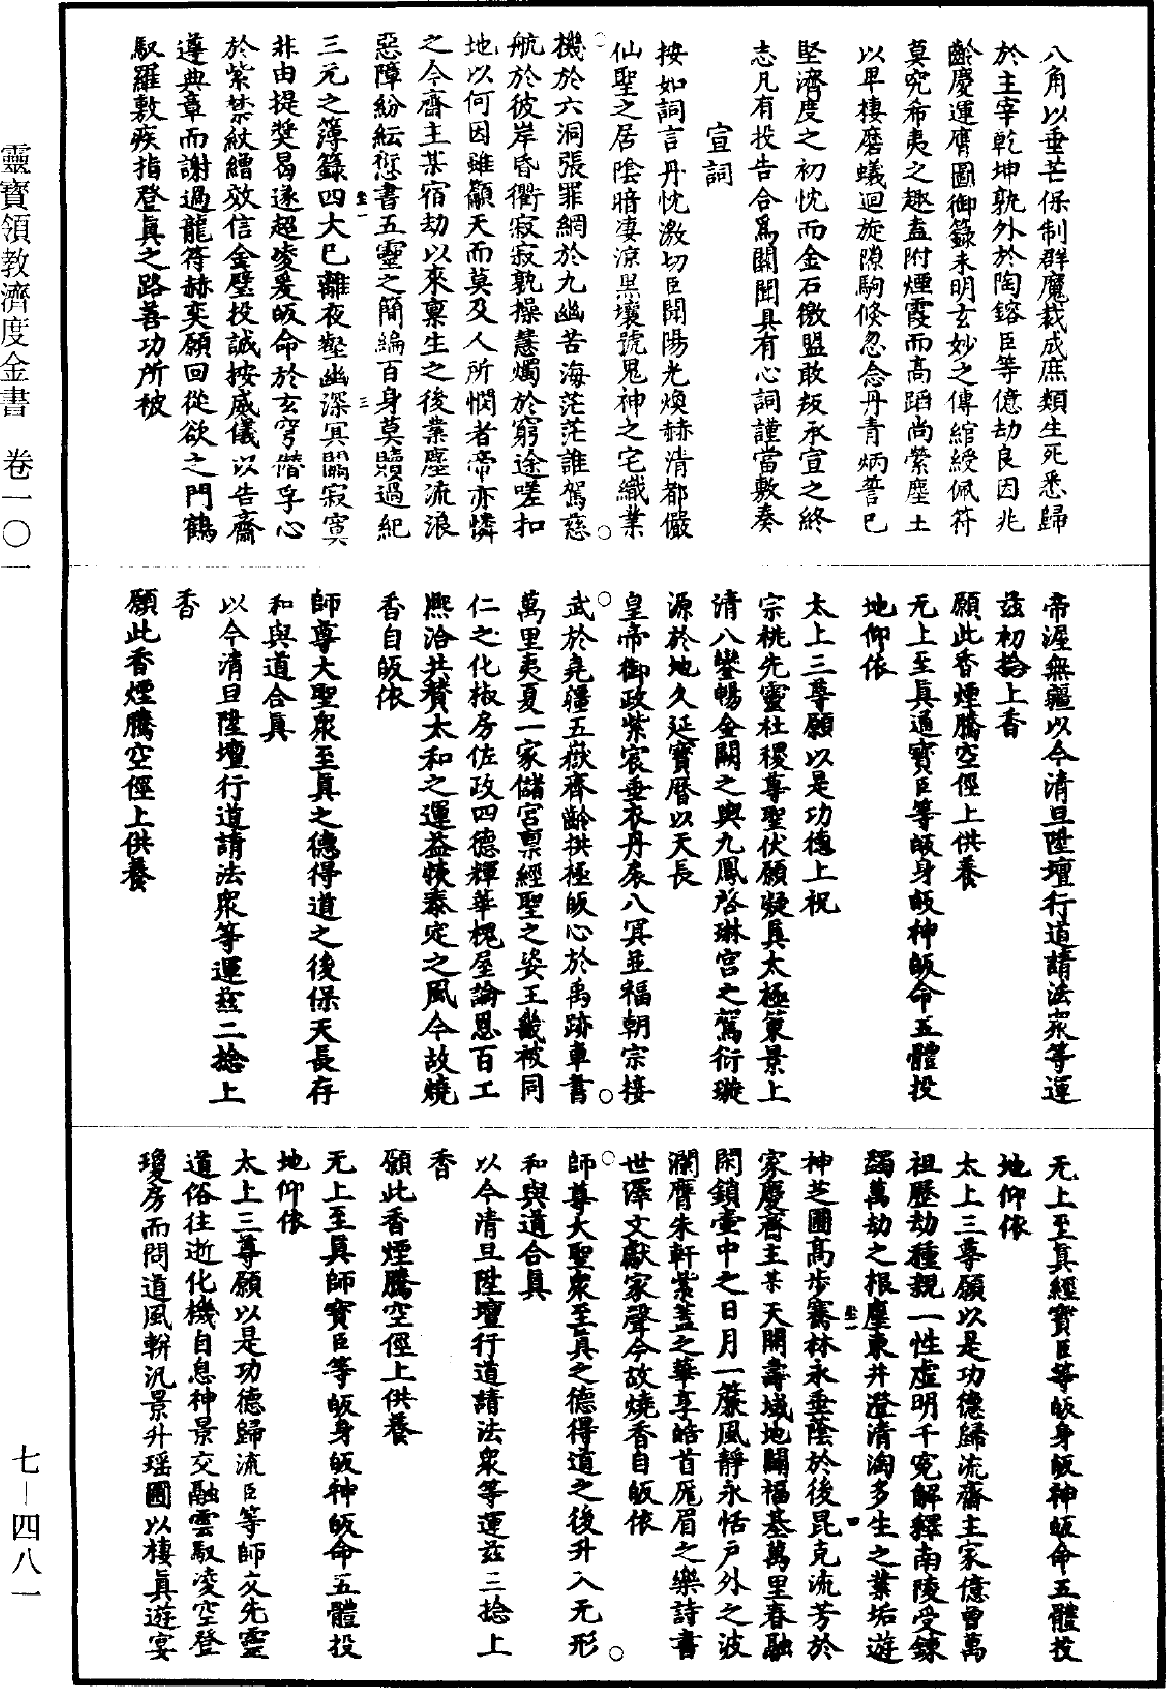 八角以垂芒保制群魔裁成庶類生死悉歸
於主宰乾坤孰外於陶鎔臣等億劫良因兆
齡慶運膺圖御籙未明玄妙之傳綰綬佩符
莫究希夷之趣盍附煙霞而高蹈尚縈塵土
以卑棲磨蟻迴旋隙駒倏忽念丹青炳誓已
堅濟度之初忱而金石徽盟敢叛承宣之終
志凡有投告合爲關聞具有心詞謹當敷奏
宣詞
按如詞言丹忱激切臣聞陽光煥赫清都儼
仙聖之居陰暗淒涼黑壤號鬼神之宅織業
機於六洞張罪網於九幽苦海茫茫誰駕慈
航於彼岸昏衢寂寂孰操慧燭於窮途嗟扣
地以何因雖籲天而莫及人所憫者帝亦憐
之今齋主某宿劫以來稟生之後業塵流浪
惡障紛紜愆書五靈之簡編百身莫贖過紀
三元之簿錄四大已離夜壑幽深冥關寂寞
非由提奬曷遂超凌爰皈命於玄穹僭孚心
於紫禁紋繒效信金璧投誠按威儀以告齋
遵典章而謝過龍符赫奕願回從欲之門鶴
馭羅敷疾指登眞之路善功所被
帝渥無疆以今清旦陞壇行道請法眾等運
茲初捻上香
願此香煙騰空徑上供養
无上至眞道寶臣等皈身皈神皈命五體投
地仰依
太上三尊願以是功德上祝
宗祧先靈社稷尊聖伏願凝眞太極策景上
清八鸞暢金闕之輿九鳳啓琳宮之駕衍璇
源於地久延寶曆以天長
皇帝御政紫宸垂衣丹扆八冥並福朝宗接
武於堯疆五嶽齊齡拱極皈心於禹跡車書
萬里夷夏一家儲宮稟經聖之姿王畿被同
仁之化椒房佐政四德輝華槐屋論恩百工
熙洽共贊太和之運益恢泰定之風今故燒
香自皈依
師尊大聖眾至眞之德得道之後保天長存
和與道合眞
以今清旦陞壇行道請法眾等運茲二捻上
香
願此香煙騰空徑上供養
无上至眞經寶臣等皈身皈神皈命五體投
地仰依
太上三尊願以是功德歸流齋主家億曾萬
祖歷劫種親一性虛明千寃解釋南陵受鍊
蠲萬劫之根塵東井澄清淘多生之業垢遊
神芝圃高步騫林永垂蔭於後昆克流芳於
家慶齋主某天開壽域地闢福基萬里春融
閑鎖壷中之日月一簾風靜永恬戶外之波
瀾膺朱軒紫蓋之華享皓首厖眉之樂詩書
世澤文獻家聲今故燒香自皈依
師尊大聖眾至眞之德得道之後升入无形
和與道合眞
以今清旦陞壇行道請法眾等運茲三捻上
香
願此香煙騰空徑上供養
无上至眞師寶臣等皈身皈神皈命五體投
地仰依
太上三尊願以是功德歸流臣等師父先靈
道俗往逝化機自息神景交融雲馭凌空登
瓊房而問道風軿汎景升瑶圃以棲眞遊宴
靈寶領教濟度金書　卷一〇一
七—四八一